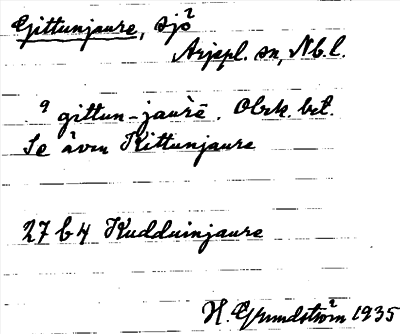 Gittunjaure, sjö
Arjepl. sn, Nb.l.
gittun-jaùrē. Obek. bet.
Se även Kittunjaure
27 b 4 Kudduinjaure
H. Grundström 1935